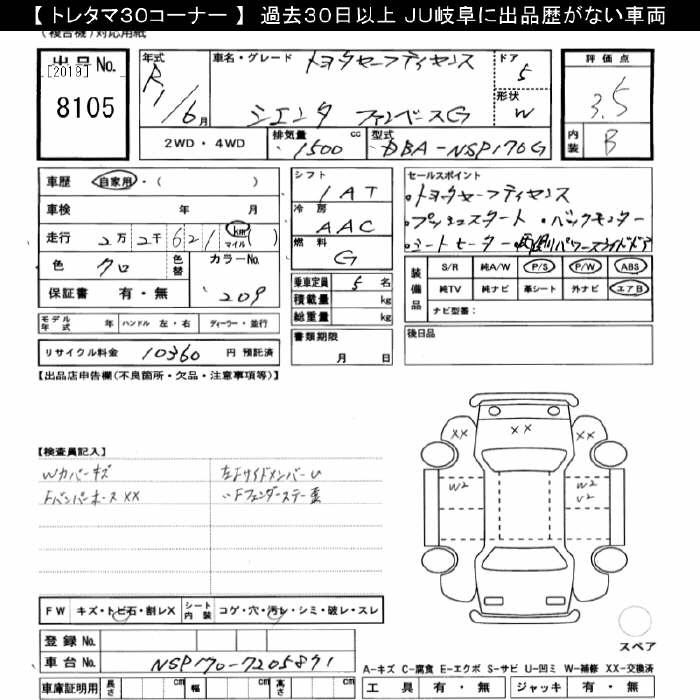 【 トレタマ30コーナー 】 過去30日以上 JU岐阜に出品歴がない車両
(複合機)対応用紙
出品 No.
[2019]
8105
年式 R1/6月
車名・グレード トヨタセーフティセンス
シエンタ ファンベースG
ドア 5
形状 W
2WD・4WD
排気量 1500 cc
型式 DBA-NSP170G
評価点
3.5
内装 B
車歴 自家用・( )
車検 年 月
走行 2万2千621 km マイル ( )
色 クロ 色替
カラーNo. 209
保証書 有・無
シフト IAT
冷房 AAC
燃料 G
乗車定員 5 名
積載量 kg
総重量 kg
セールスポイント
・トヨタセーフティセンス
・プッシュスタート ・バックモニター
・シートヒーター ・両側パワースライドドア
装備品
S/R 純A/W P/S P/W ABS
純TV 純ナビ 革シート 外ナビ エアB
ナビ型番:
モデル年式 年 ハンドル 左・右 ディーラー・並行
リサイクル料金 10360 円 預託済
書類期限
月 日
後日品
【出品店申告欄(不良箇所・欠品・注意事項等)】
【検査員記入】
Wカバーキズ 左FサイドメンバーU
Fバンパーホース XX 〃Fフェンダーステー歪
XX XX XX
W2 W2
U2
FW キズ・トビ石・割レX シート内装 コゲ・穴・汚レ・シミ・破レ・スレ
登録 No.
車台 No. NSP170-7205871
スペア
A-キズ C-腐食 E-エクボ S-サビ U-凹ミ W-補修 XX-交換済
車庫証明用 長さ cm 幅 cm 高さ cm
工具 有・無 ジャッキ 有・無